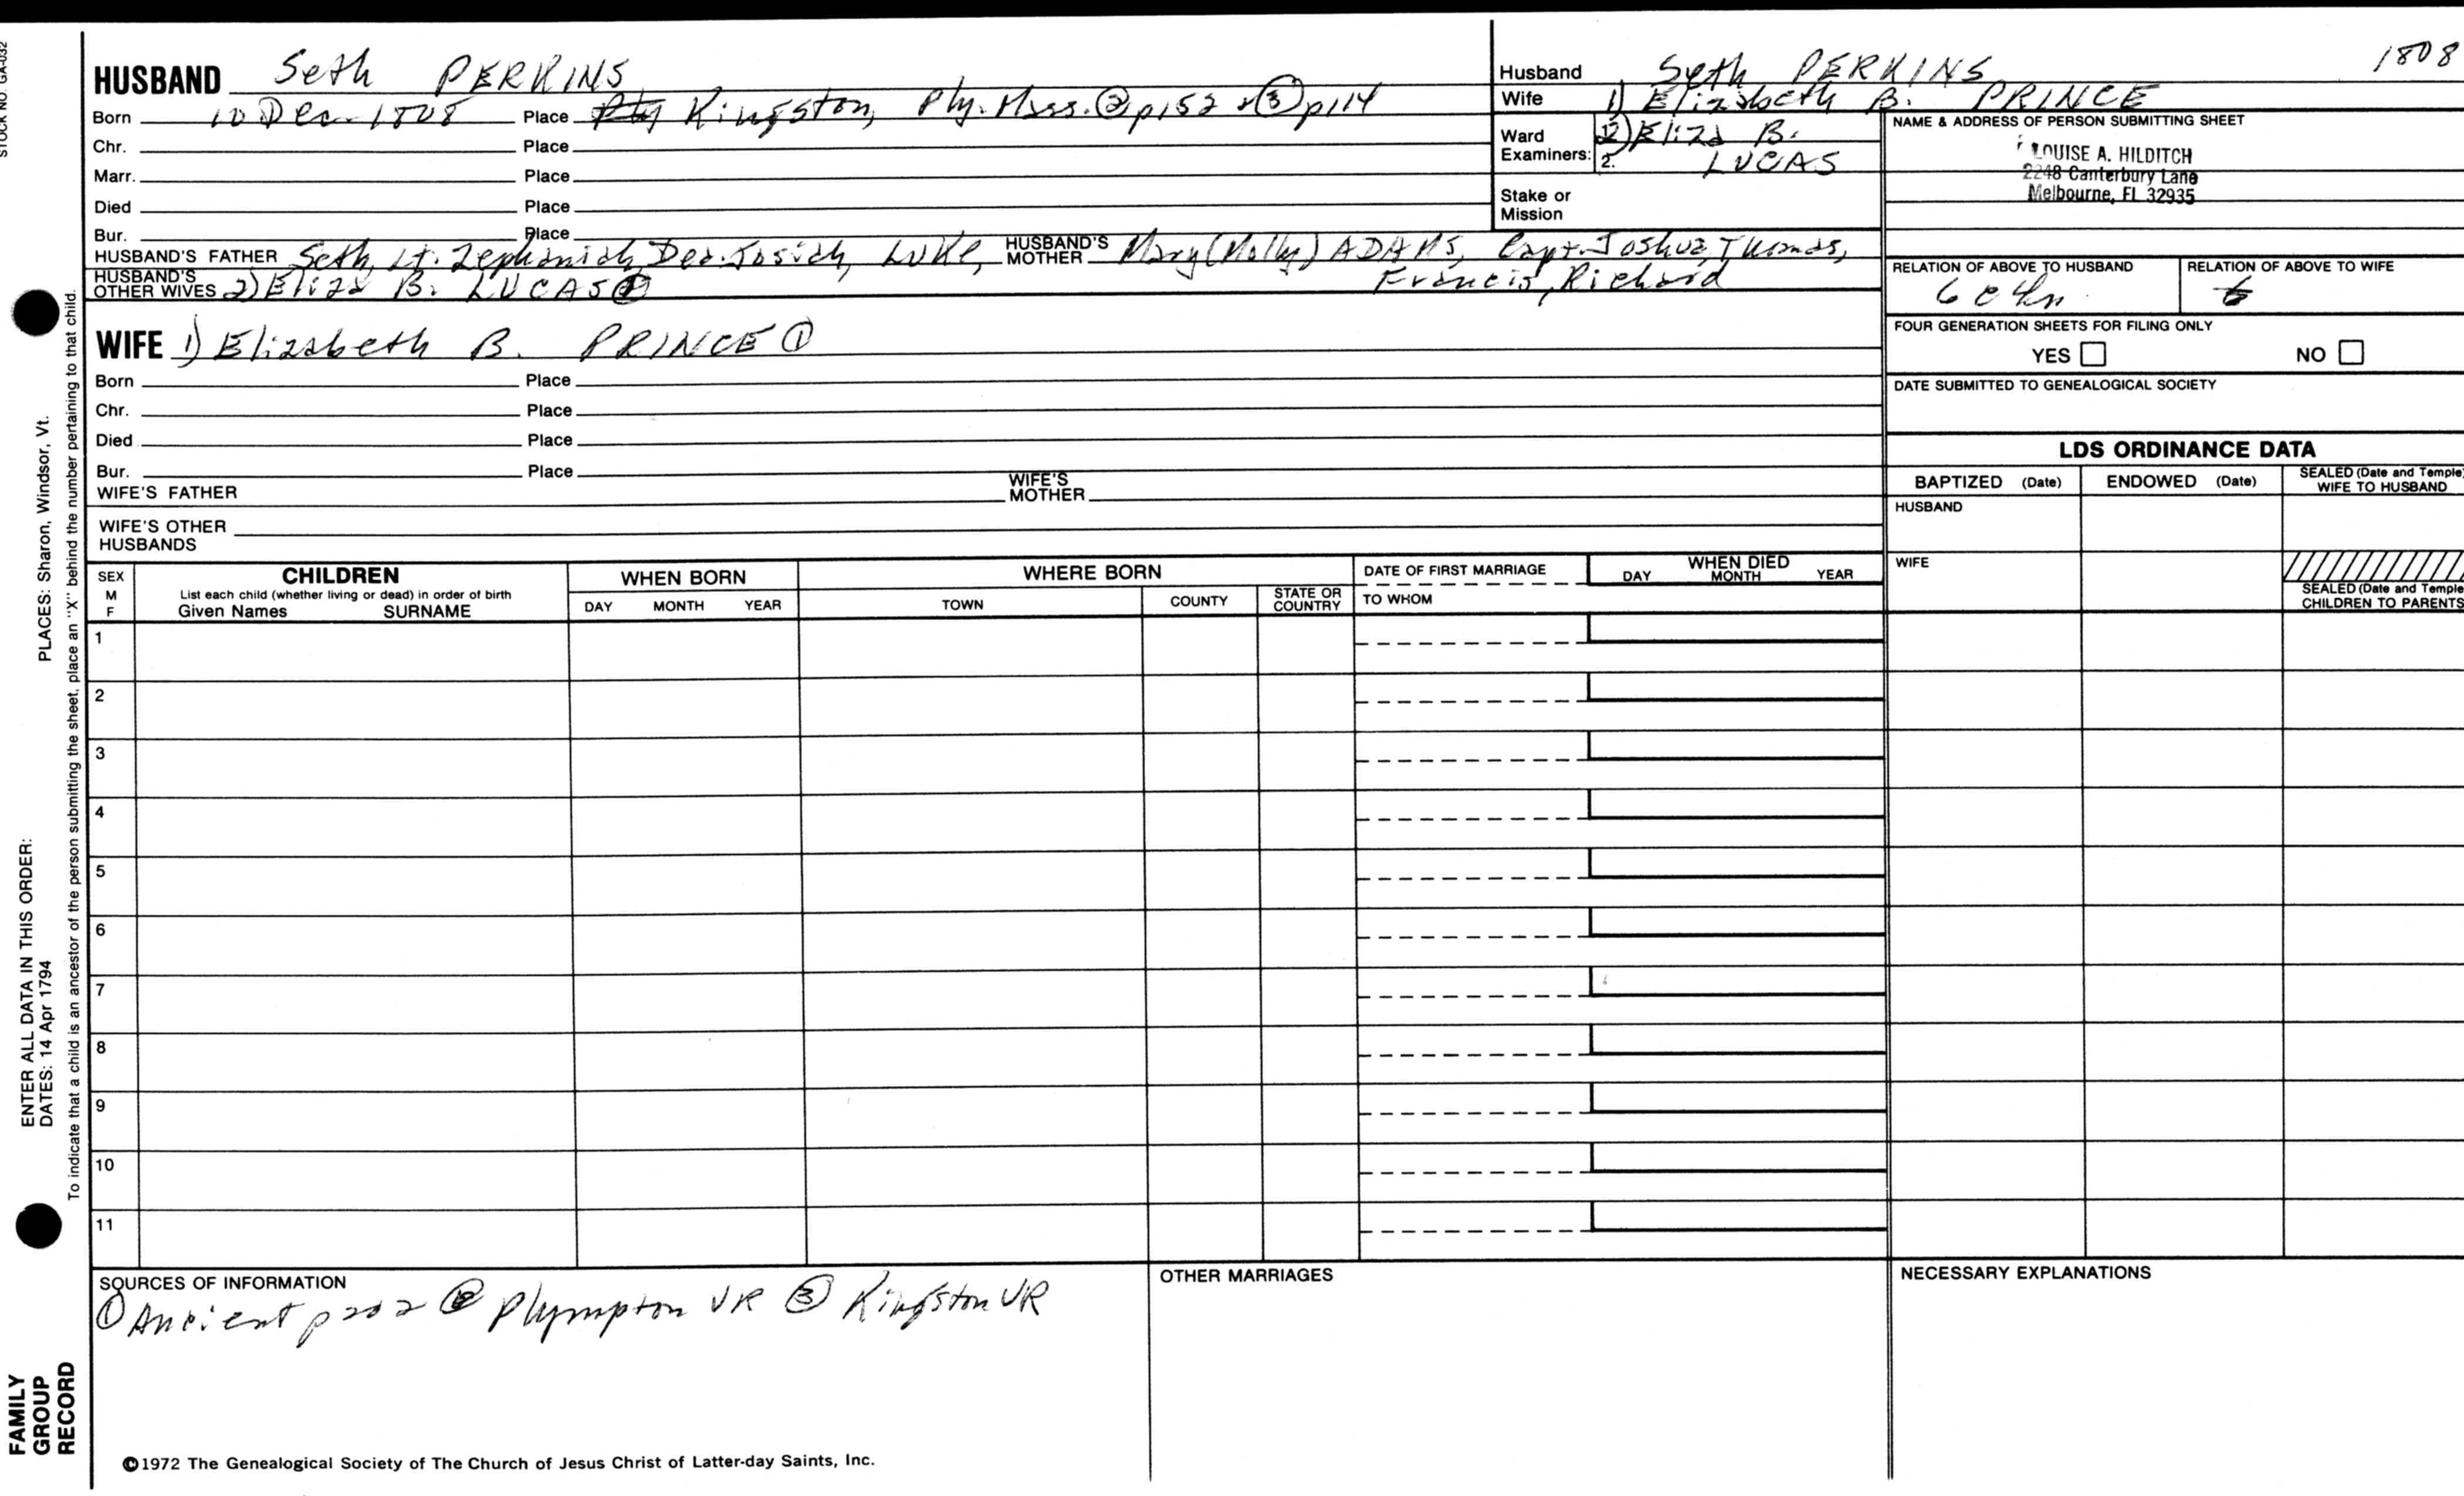 STOCK NO. GA-032
HUSBAND Seth PERKINS
Born 10 Dec 1808 Place Kingston, Ply. Mass. ② p152 & ③ p114
Chr. Place
Marr. Place
Died Place
Bur. Place
HUSBAND'S FATHER Seth, Lt. Zephaniah, Dea. Josiah, Luke, HUSBAND'S MOTHER Mary (Molly) ADAMS, Capt. Joshua, Thomas,
Francis, Richard
HUSBAND'S OTHER WIVES 2) Eliza B. LUCAS ①
WIFE 1) Elizabeth B. PRINCE ①
Born Place
Chr. Place
Died Place
Bur. Place
WIFE'S FATHER WIFE'S MOTHER
WIFE'S OTHER HUSBANDS
1808
Husband Seth PERKINS
Wife 1) Elizabeth B. PRINCE
Ward Examiners: 2) Eliza B.
2. LUCAS
Stake or Mission
NAME & ADDRESS OF PERSON SUBMITTING SHEET
LOUISE A. HILDITCH
2248 Canterbury Lane
Melbourne, FL 32935
RELATION OF ABOVE TO HUSBAND RELATION OF ABOVE TO WIFE
6 c 4 r
FOUR GENERATION SHEETS FOR FILING ONLY
YES NO
DATE SUBMITTED TO GENEALOGICAL SOCIETY
LDS ORDINANCE DATA
BAPTIZED (Date) ENDOWED (Date) SEALED (Date and Temple) WIFE TO HUSBAND
HUSBAND
WIFE
SEALED (Date and Temple) CHILDREN TO PARENTS
SEX M F
CHILDREN
List each child (whether living or dead) in order of birth
Given Names SURNAME
WHEN BORN
DAY MONTH YEAR
WHERE BORN
TOWN COUNTY STATE OR COUNTRY
DATE OF FIRST MARRIAGE
TO WHOM
WHEN DIED
DAY MONTH YEAR
1
2
3
4
5
6
7
8
9
10
11
SOURCES OF INFORMATION
① Ancient p 202 ② Plympton VR ③ Kingston VR
OTHER MARRIAGES
NECESSARY EXPLANATIONS
©1972 The Genealogical Society of The Church of Jesus Christ of Latter-day Saints, Inc.
ENTER ALL DATA IN THIS ORDER:
DATES: 14 Apr 1794
PLACES: Sharon, Windsor, Vt.
To indicate that a child is an ancestor of the person submitting the sheet, place an "X" behind the number pertaining to that child.
FAMILY
GROUP
RECORD